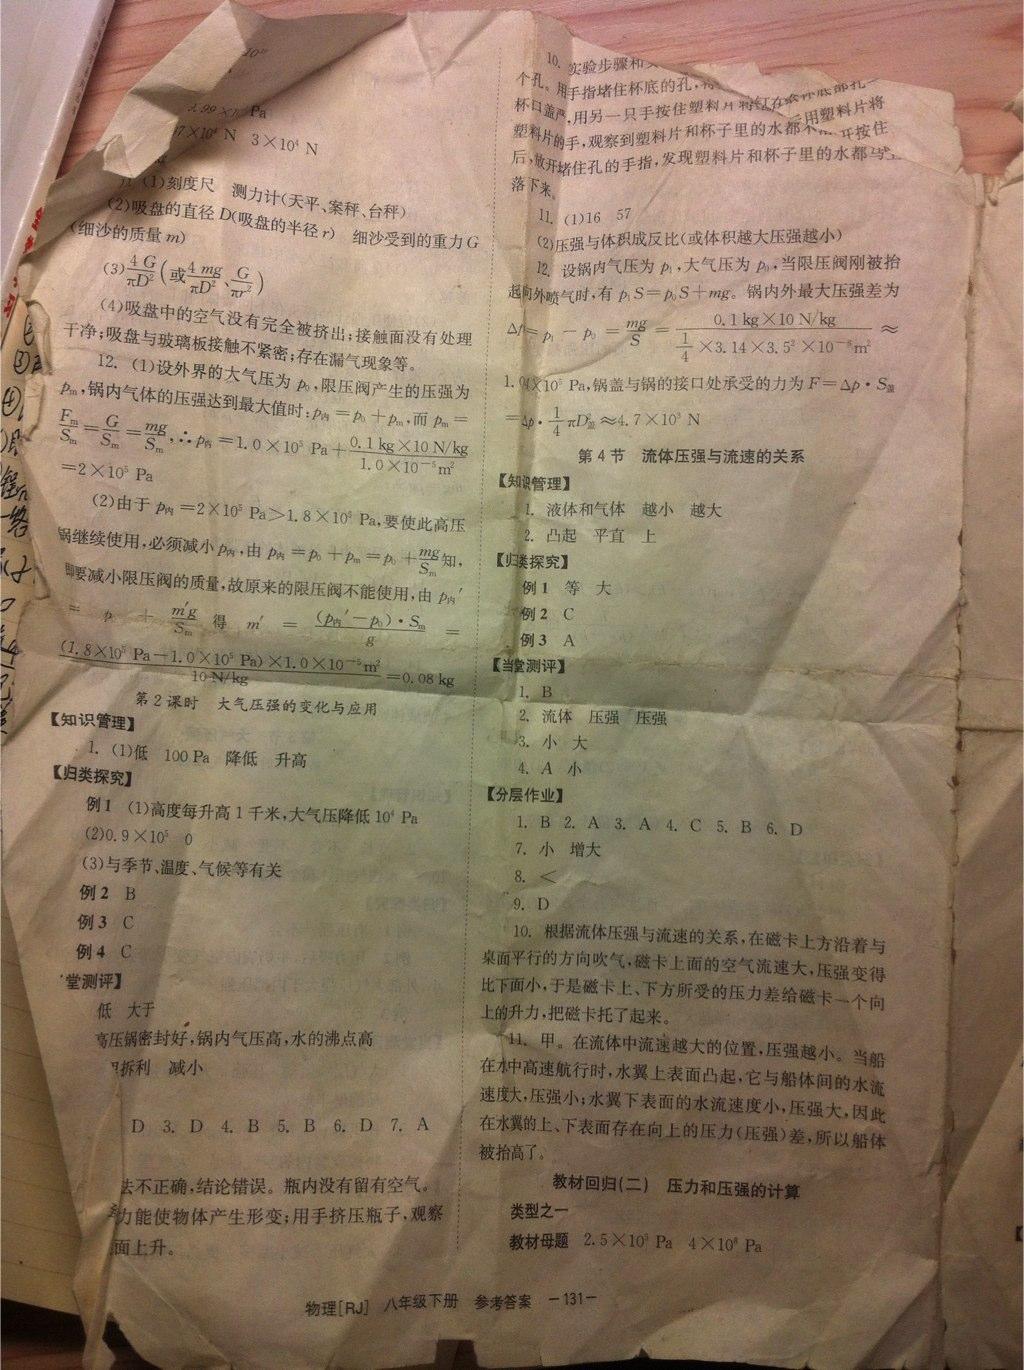 Pa
N 3×10⁴ N
(1)刻度尺 测力计(天平、案秤、台秤)
(2)吸盘的直径D(吸盘的半径r) 细沙受到的重力G
(细沙的质量m)
(3)4G/πD²(或4mg/πD²、G/πr²)
(4)吸盘中的空气没有完全被挤出;接触面没有处理
干净;吸盘与玻璃板接触不紧密;存在漏气现象等。
12. (1)设外界的大气压为p₀,限压阀产生的压强为
pₘ,锅内气体的压强达到最大值时:p内=p₀+pₘ,而pₘ=
Fₘ/Sₘ=G/Sₘ=mg/Sₘ,∴p内=1.0×10⁵ Pa+0.1 kg×10 N/kg/1.0×10⁻⁵m²
=2×10⁵ Pa
(2)由于p内=2×10⁵ Pa>1.8×10⁵ Pa,要使此高压
锅继续使用,必须减小p内,由p内=p₀+pₘ=p₀+mg/Sₘ知,
即要减小限压阀的质量,故原来的限压阀不能使用,由p内′
= p₀ + m′g/Sₘ 得 m′ = (p内′-p₀)·Sₘ/g =
(1.8×10⁵ Pa-1.0×10⁵ Pa)×1.0×10⁻⁵m²/10 N/kg=0.08 kg
第2课时 大气压强的变化与应用
【知识管理】
1. (1)低 100 Pa 降低 升高
【归类探究】
例1 (1)高度每升高1千米,大气压降低10⁴ Pa
(2)0.9×10⁵ 0
(3)与季节、温度、气候等有关
例2 B
例3 C
例4 C
堂测评】
低 大于
高压锅密封好,锅内气压高,水的沸点高
拆利 减小
D 3. D 4. B 5. B 6. D 7. A
法不正确,结论错误。瓶内没有留有空气。
力能使物体产生形变;用手挤压瓶子,观察
面上升。
10. 实验步骤和
个孔。用手指堵住杯底的孔,
杯口盖严,用另一只手按住塑料片
塑料片的手,观察到塑料片和杯子里的水都
后,放开堵住孔的手指,发现塑料片和杯子里的水都
落下来。
11. (1)16 57
(2)压强与体积成反比(或体积越大压强越小)
12. 设锅内气压为p₁,大气压为p₀,当限压阀刚被抬
起向外喷气时,有p₁S=p₀S+mg。锅内外最大压强差为
Δp=p₁-p₀=mg/S=0.1 kg×10 N/kg/1/4×3.14×3.5²×10⁻⁶m²≈
1.04×10⁵ Pa,锅盖与锅的接口处承受的力为F=Δp·S盖
=Δp·1/4πD²盖≈4.7×10³ N
第4节 流体压强与流速的关系
【知识管理】
1. 液体和气体 越小 越大
2. 凸起 平直 上
【归类探究】
例1 等 大
例2 C
例3 A
【当堂测评】
1. B
2. 流体 压强 压强
3. 小 大
4. A 小
【分层作业】
1. B 2. A 3. A 4. C 5. B 6. D
7. 小 增大
8. <
9. D
10. 根据流体压强与流速的关系,在磁卡上方沿着与
桌面平行的方向吹气,磁卡上面的空气流速大,压强变得
比下面小,于是磁卡上、下方所受的压力差给磁卡一个向
上的升力,把磁卡托了起来。
11. 甲。在流体中流速越大的位置,压强越小。当船
在水中高速航行时,水翼上表面凸起,它与船体间的水流
速度大,压强小;水翼下表面的水流速度小,压强大,因此
在水翼的上、下表面存在向上的压力(压强)差,所以船体
被抬高了。
教材回归(二) 压力和压强的计算
类型之一
教材母题 2.5×10³ Pa 4×10⁸ Pa
物理[RJ] 八年级下册 参考答案 —131—